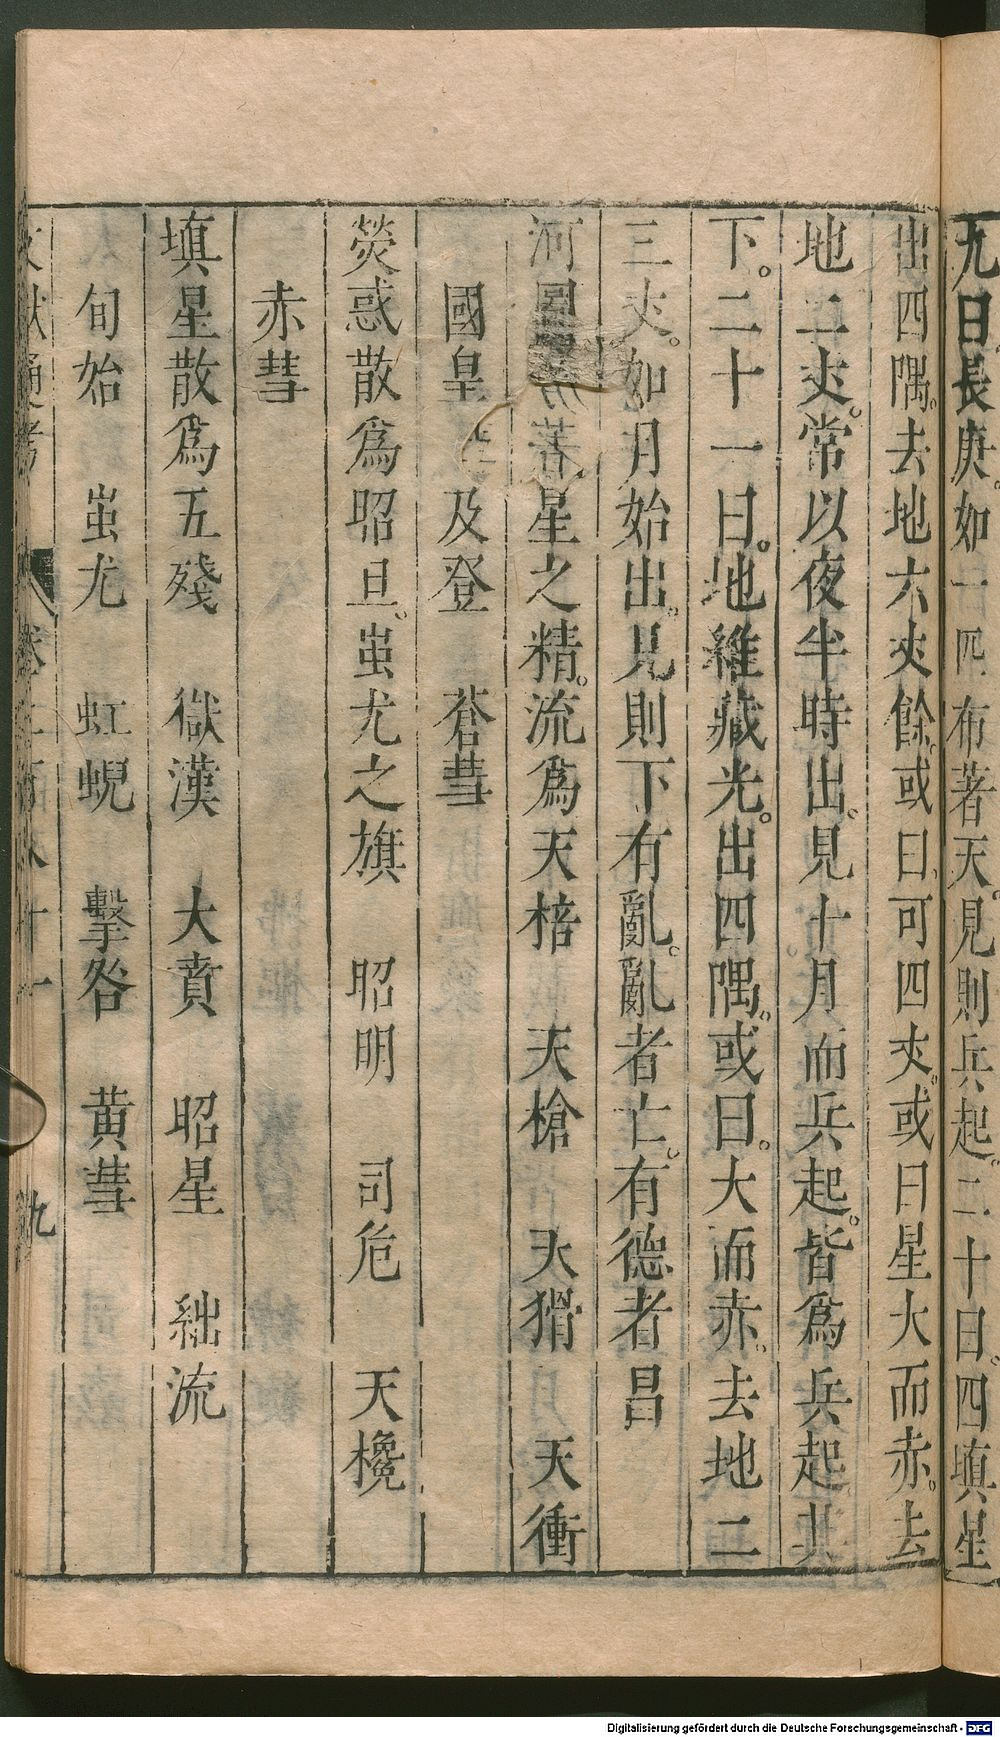 九曰長庚。如一匹布著天。見則兵起。二十曰。四填星
出四隅。去地六丈餘。或曰。可四丈。或曰星大而赤。去
地二丈。常以夜半時出。見十月而兵起。皆爲兵起其
下。二十一曰。地維藏光。出四隅。或曰。大而赤。去地二
三丈。如月始出。見則下有亂。亂者亡。有德者昌
河圖 歲星之精。流爲天棓　天槍　天猾　天衝
國皇　及登　蒼彗
熒惑散爲昭旦。蚩尤之旗　昭明　司危　天欃
赤彗
填星散爲五殘　獄漢　大賁　昭星　絀流
旬始　蚩尤　虹蜺　擊咎　黃彗
文獻通考　卷二百八十一　九
Digitalisierung gefördert durch die Deutsche Forschungsgemeinschaft - DFG